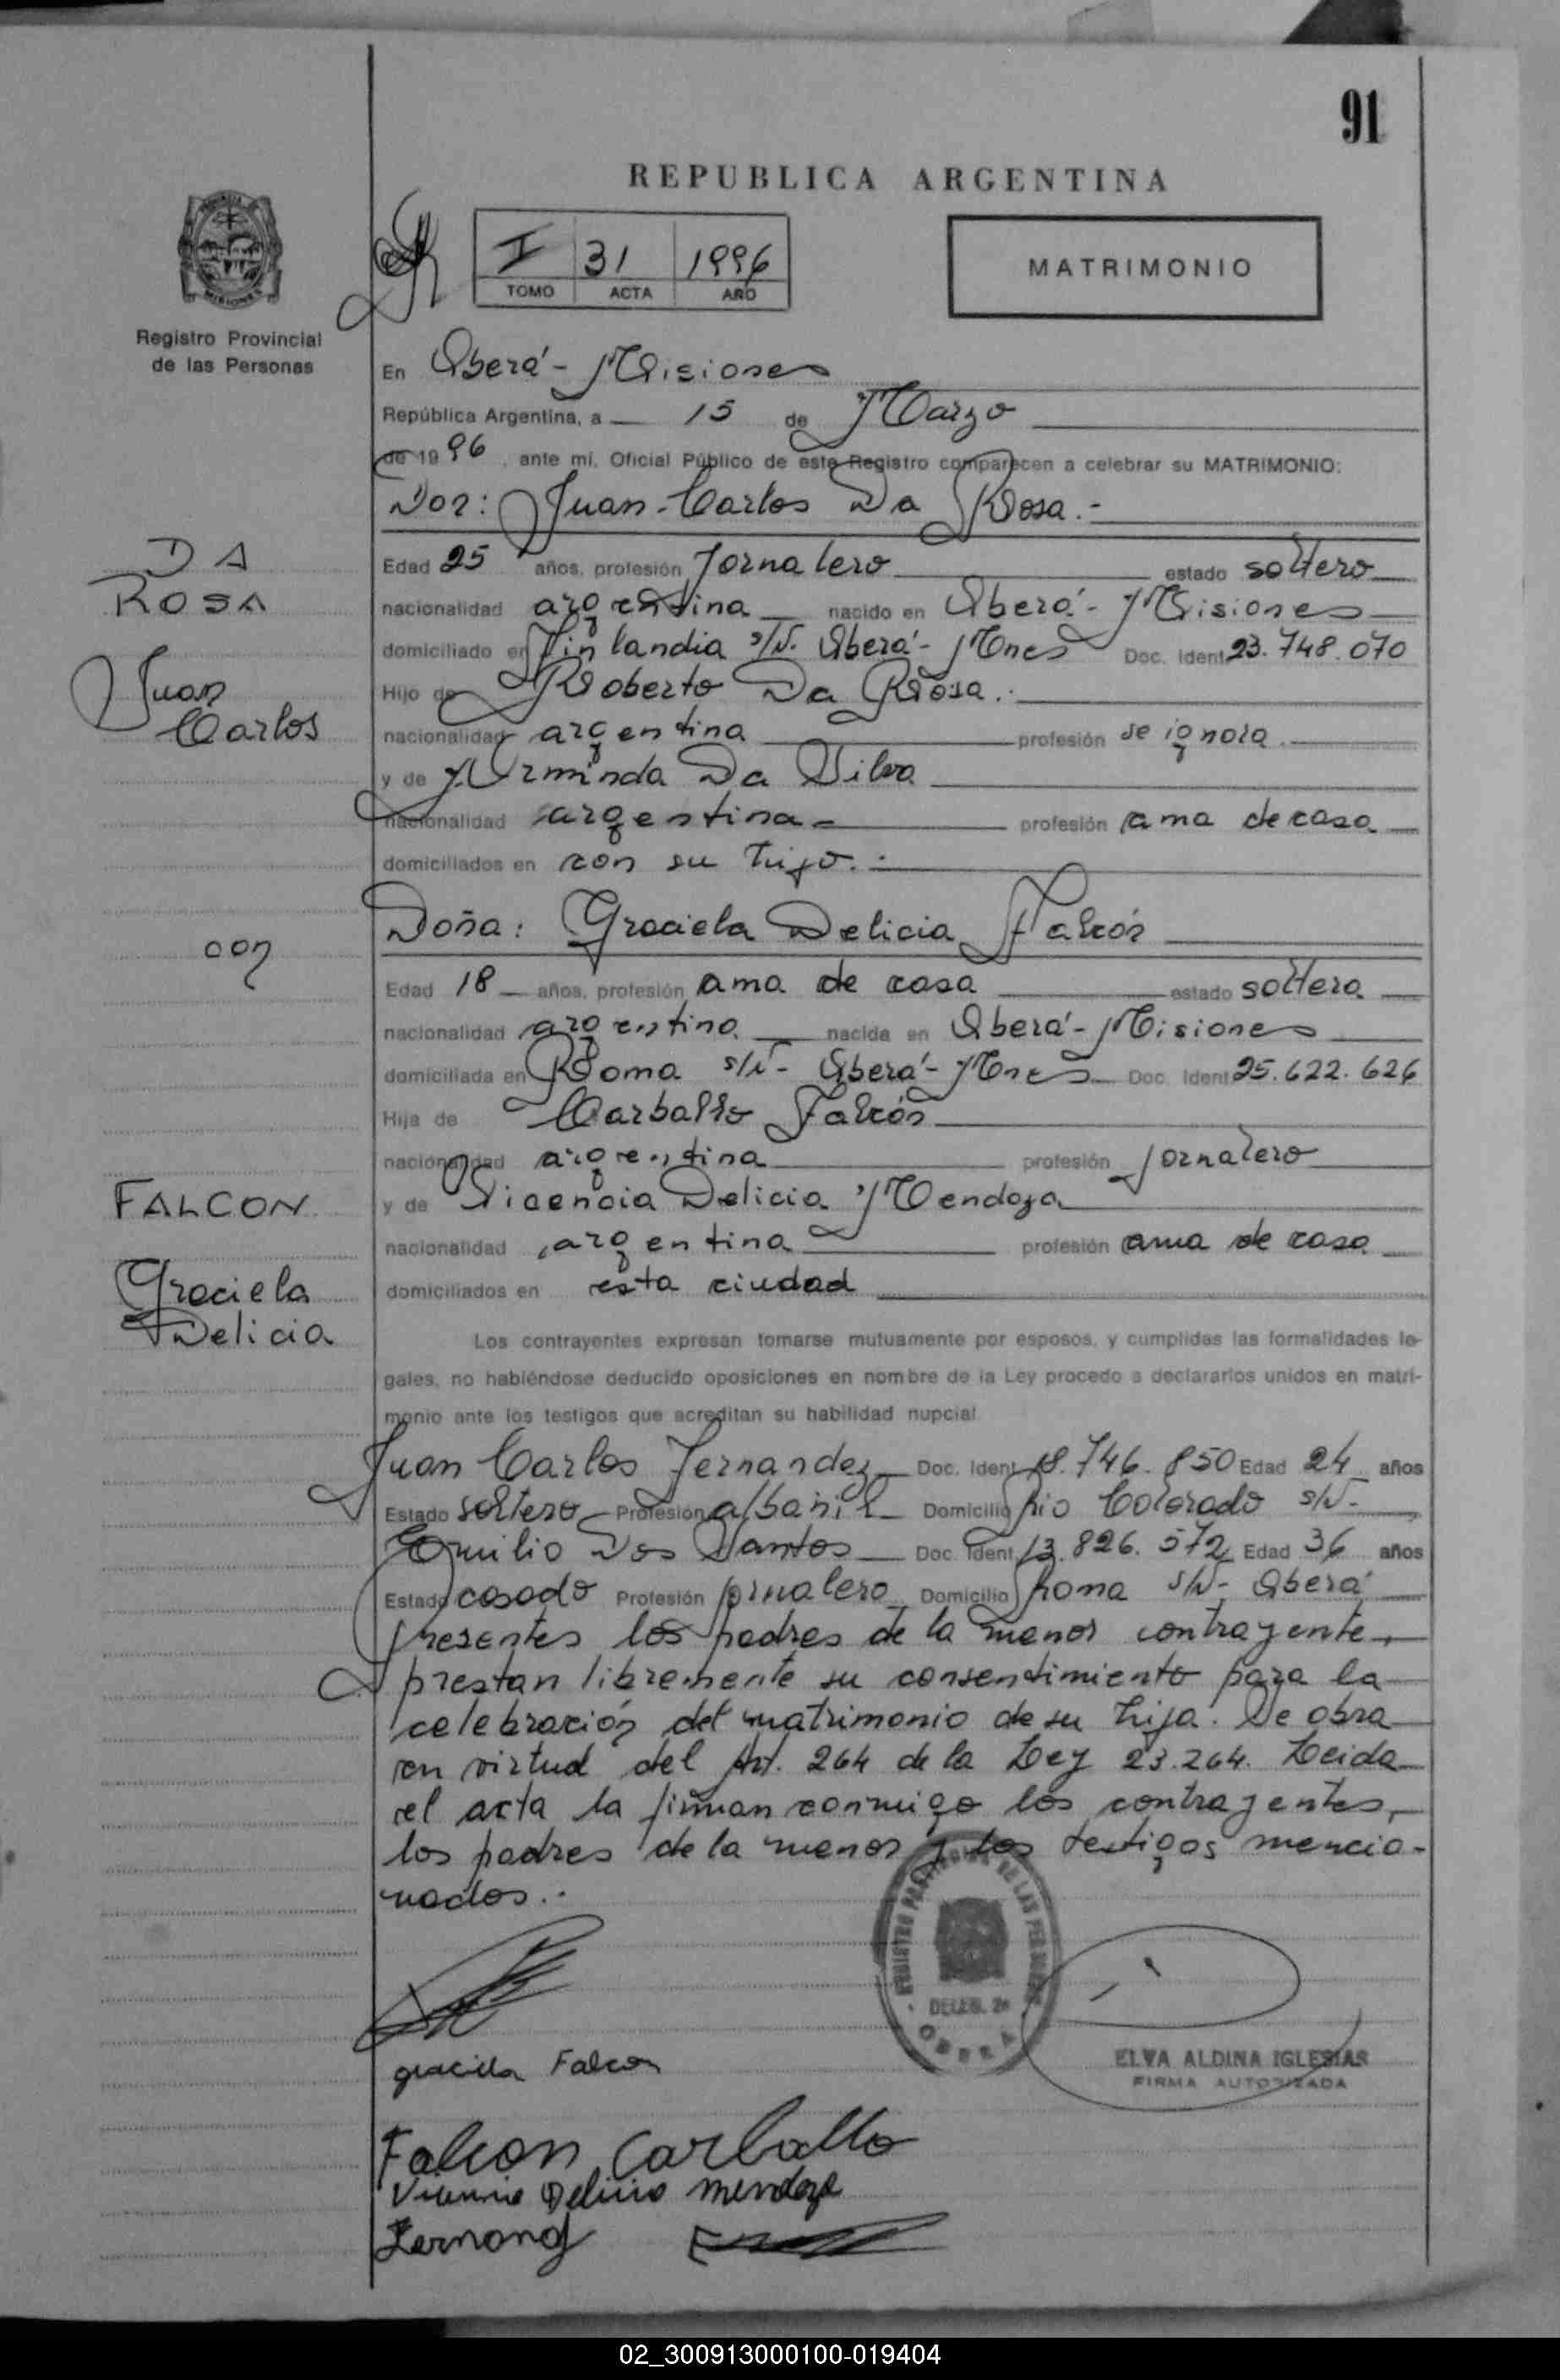 91
REPUBLICA ARGENTINA
I 31 1996
TOMO ACTA AÑO
MATRIMONIO
Registro Provincial
de las Personas
En Oberá - Misiones
República Argentina, a 15 de Marzo
de 1996, ante mí, Oficial Público de este Registro comparecen a celebrar su MATRIMONIO:
Don: Juan Carlos Da Rosa.-
DA
ROSA
Juan
Carlos
Edad 25 años, profesión Jornalero estado soltero
nacionalidad argentina nacido en Oberá - Misiones
domiciliado en Finlandia s/N. Oberá - Mnes Doc. Ident. 23.748.070
Hijo de Roberto Da Rosa.
nacionalidad argentina profesión se ignora.
y de Arminda Da Silva
nacionalidad argentina- profesión ama de casa
domiciliados en con su hijo.-
Doña: Graciela Delicia Falcón
con
Edad 18 años, profesión ama de casa estado soltera
nacionalidad argentina nacida en Oberá - Misiones
domiciliada en Roma s/N - Oberá - Mnes Doc. Ident. 25.622.626
Hija de Carballo Falcón
nacionalidad argentina profesión Jornalero
y de Vicencia Delicia Mendoza
nacionalidad argentina profesión ama de casa
domiciliados en esta ciudad
FALCON
Graciela
Delicia
Los contrayentes expresan tomarse mutuamente por esposos, y cumplidas las formalidades le-
gales, no habiéndose deducido oposiciones en nombre de la Ley procedo a declararlos unidos en matri-
monio ante los testigos que acreditan su habilidad nupcial
Juan Carlos Fernandez Doc. Ident. 18.746.850 Edad 24 años
Estado soltero Profesión albañil Domicilio Rio Colorado s/N.-
Emilio Dos Santos Doc. Ident. 13.826.572 Edad 36 años
Estado casado Profesión jornalero Domicilio Roma s/N - Oberá
Presentes los padres de la menor contrayente,
prestan libremente su consentimiento para la
celebración del matrimonio de su hija. Se obra
en virtud del Art. 264 de la Ley 23.264. Leida
el acta la firman conmigo los contrayentes,
los padres de la menor y los testigos mencio-
nados.-
REGISTRO PROVINCIAL DE LAS PERSONAS
DELEG. 2ª
OBERA
ELVA ALDINA IGLESIAS
FIRMA AUTORIZADA
graciela Falcon
Falcon Carballo
Vicencia Delicia Mendoza
02_300913000100-019404